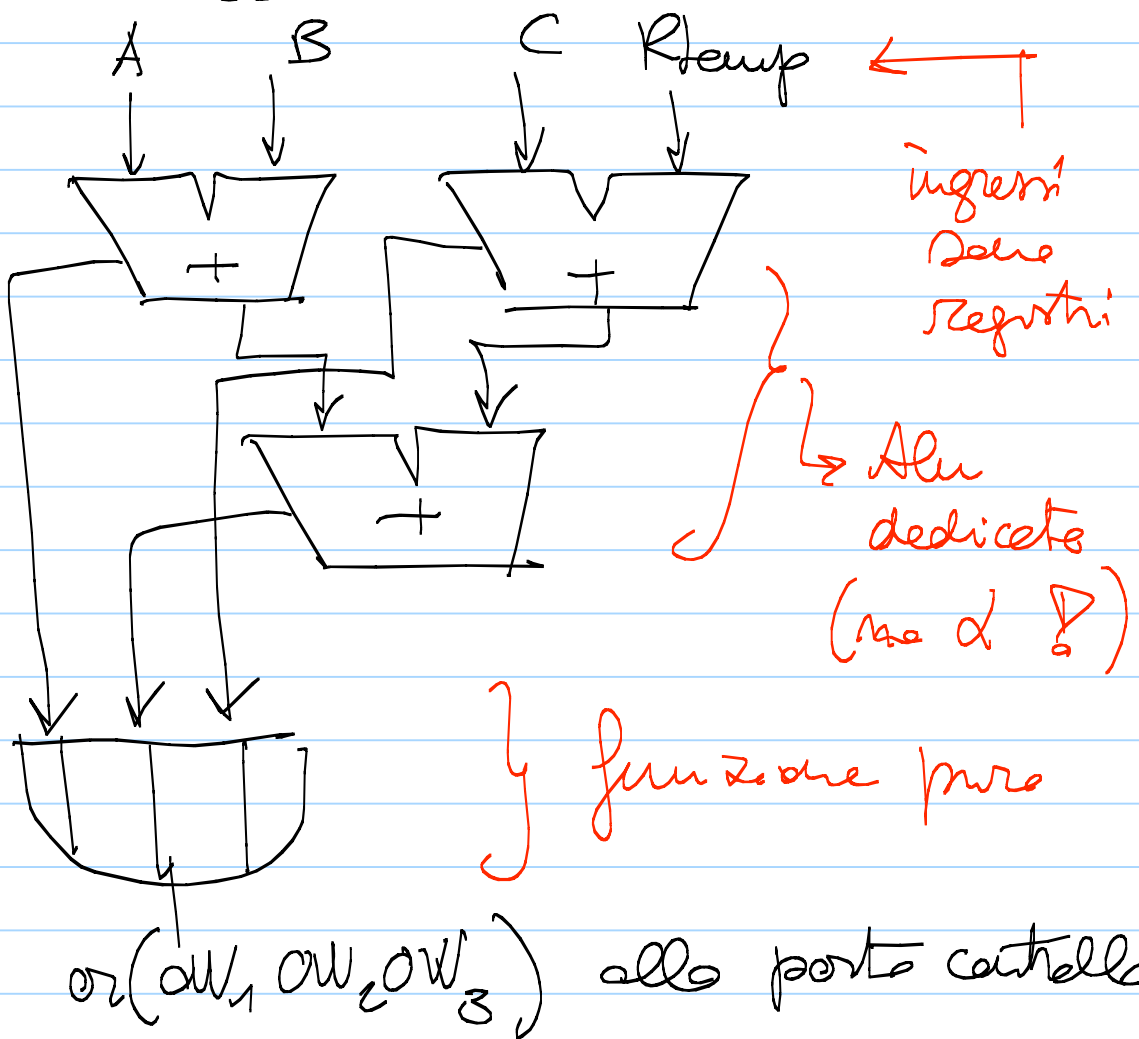 A B C Rtemp
ingressi
sono
registri
+ +
+
Alu
dedicata
(no α !)
funzione pura
or(OW1 OW2 OW3) alla parte controllo